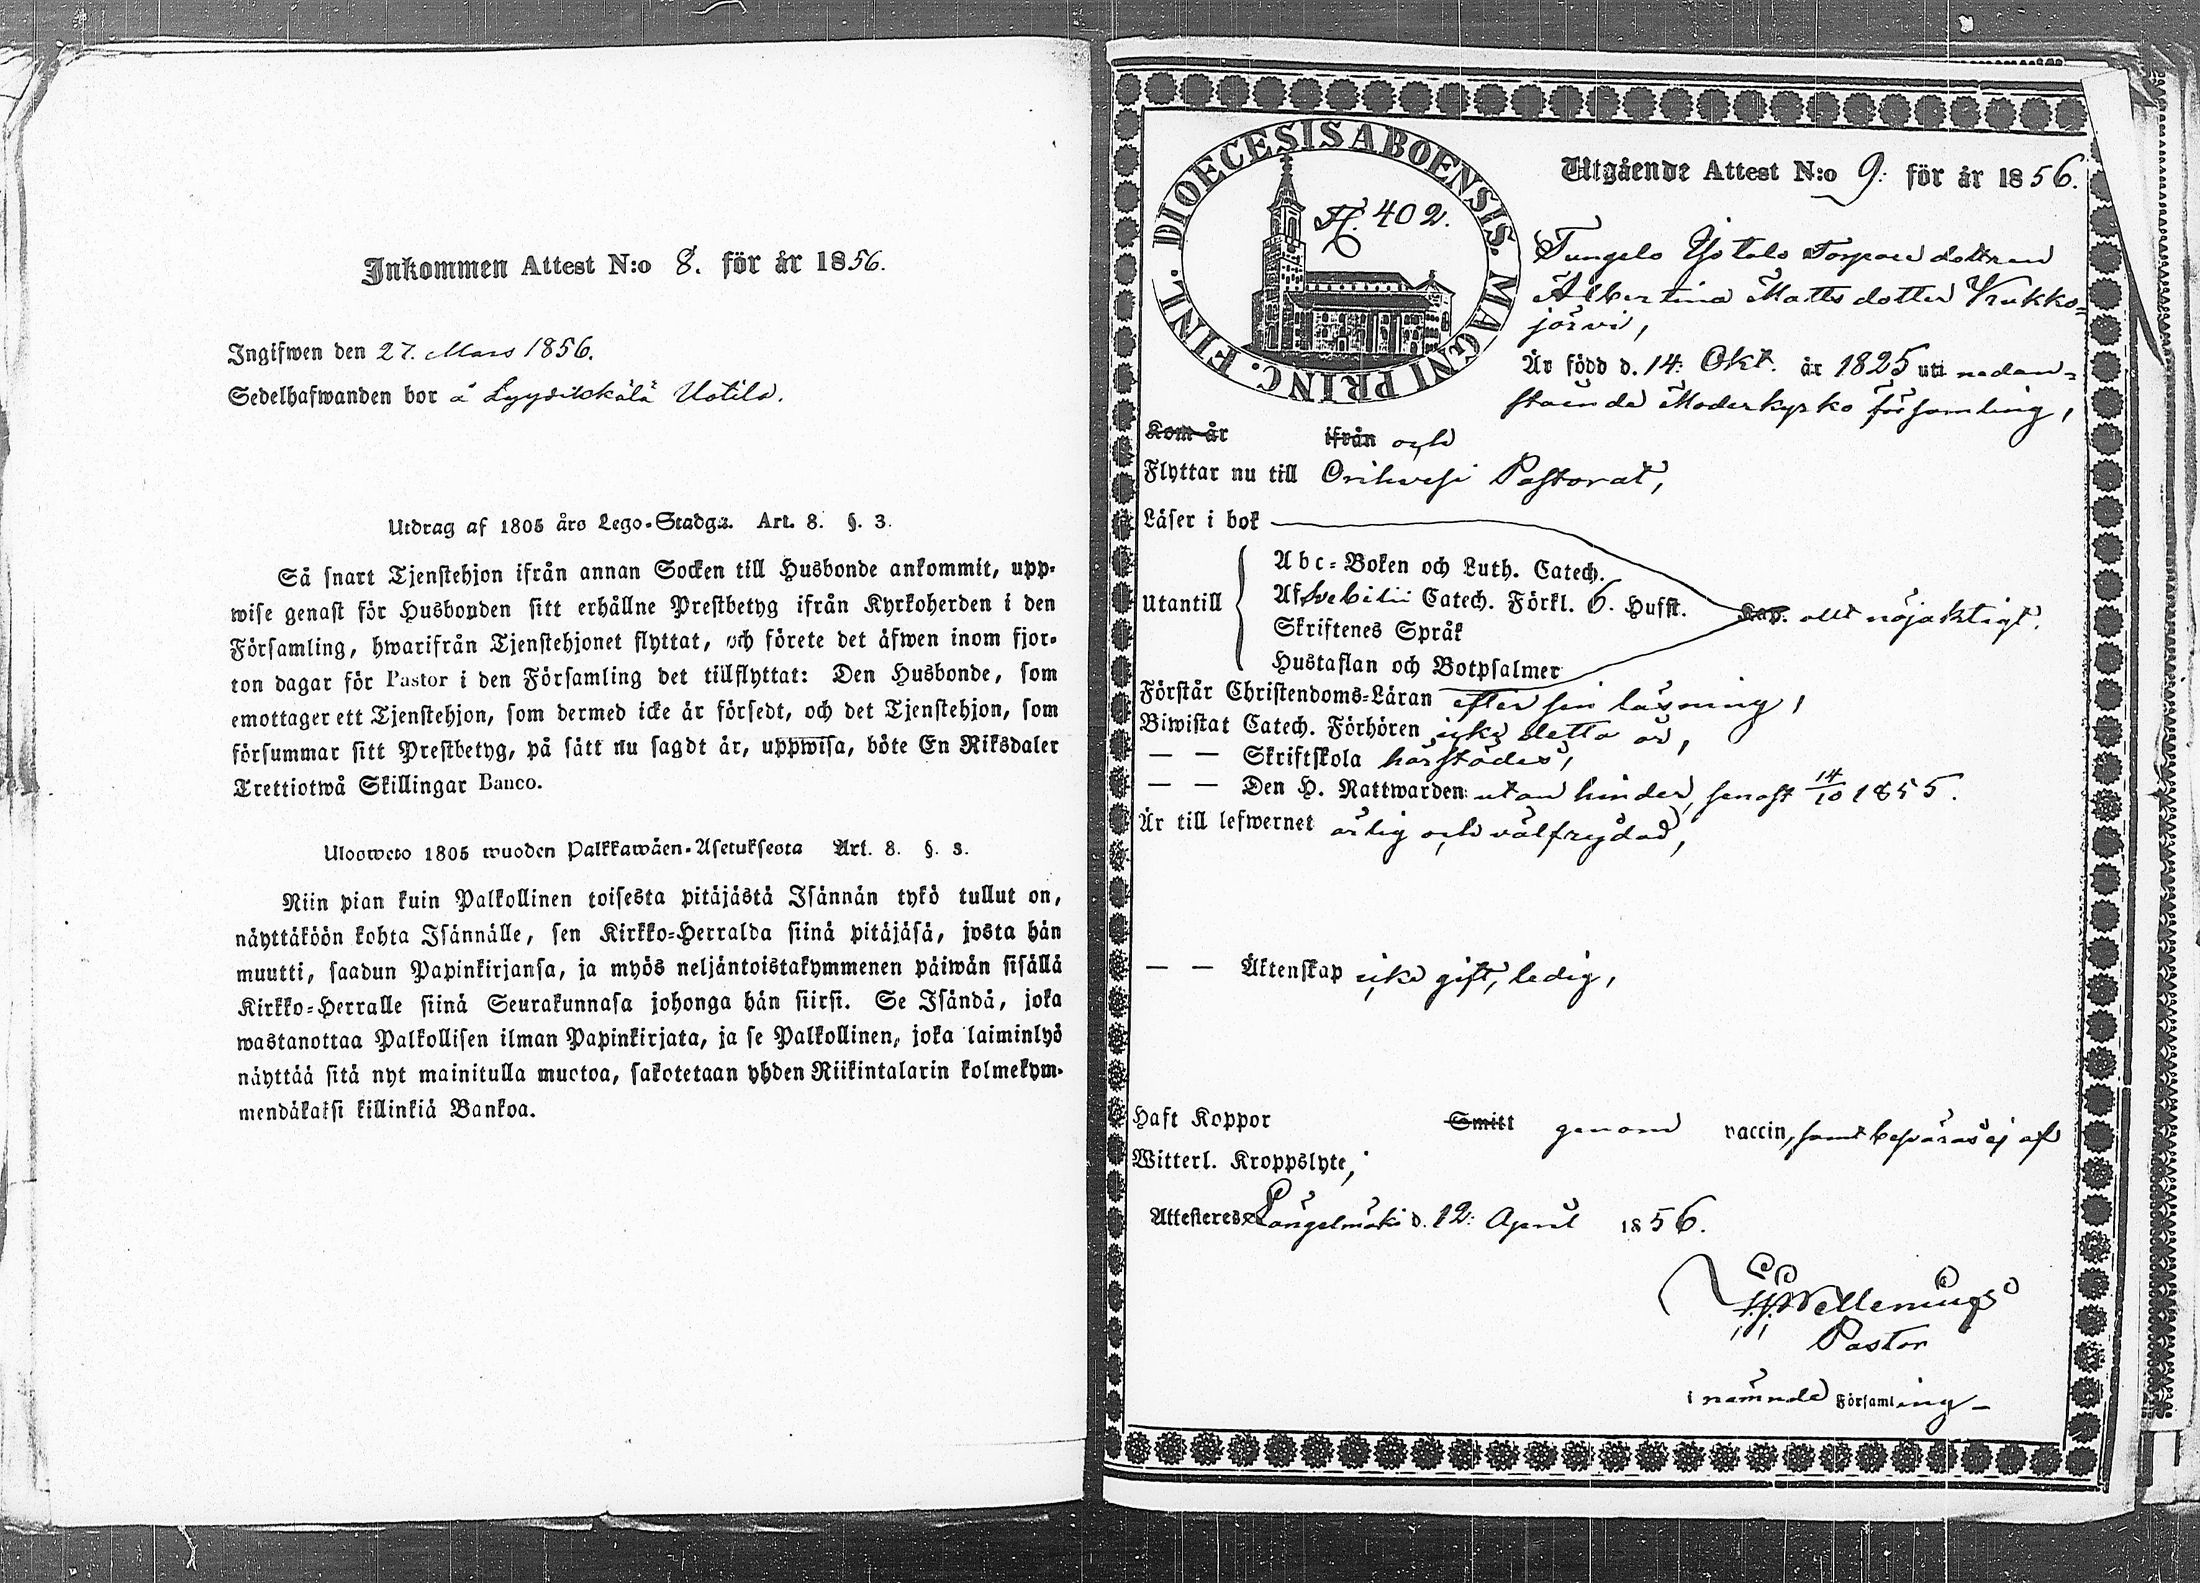 Inkommen Attest N:o 8. för år 1856.
Ingifwen den 27. Mars 1856.
Sedelhafwanden bor å Lyytikkälä Uotila.
Utdrag af 1805 års Lego-Stadga. Art. 8. §. 3.
Så snart Tjenstehjon ifrån annan Socken till Husbonde ankommit, upp-
wise genast för Husbonden sitt erhållne Prestbetyg ifrån Kyrkoherden i den
Församling, hwarifrån Tjenstehjonet flyttat, och förete det äfwen inom fjor-
ton dagar för Pastor i den Församling det tillflyttat: Den Husbonde, som
emottager ett Tjenstehjon, som dermed icke är försedt, och det Tjenstehjon, som
försummar sitt Prestbetyg, på sätt nu sagdt är, uppwisa, böte En Riksdaler
Trettiotwå Skillingar Banco.
Ulosweto 1805 wuoden Palkkawäen-Asetuksesta Art. 8. §. 3.
Niin pian kuin Palkollinen toisesta pitäjästä Isännän tykö tullut on,
näyttäköön kohta Isännälle, sen Kirkko-Herralda siinä pitäjäsä, josta hän
muutti, saadun Papinkirjansa, ja myös neljäntoistakymmenen päiwän sisällä
Kirkko-Herralle siinä Seurakunnasa johonga hän siirsi. Se Isändä, joka
wastanottaa Palkollisen ilman Papinkirjata, ja se Palkollinen, joka laiminlyö
näyttää sitä nyt mainitulla muotoa, sakotetaan yhden Riikintalarin kolmekym-
mendäkaksi killinkiä Bankoa.
DIOECESIS ABOENSIS. MAGNI PRINC. FINL.
402.
Utgående Attest N:o 9: för år 1856.
Torpare dottren
Albertina Mattsdotter Krukko-
järvi,
Är född d. 14: Okt. år 1825 uti nedan-
stående Moderkyrko församling,
Kom år ifrån och
Flyttar nu till Orihvesi Pastorat,
Läser i bok
Utantill
Abc-Boken och Luth. Catech.
Af Svebilii Catech. Förkl. 6. Hufst. Kap. allt nöjaktigt.
Skriftenes Språk
Hustaflan och Botpsalmer
Förstår Christendoms-Läran efter sin läsning,
Biwistat Catech. Förhören icke detta år,
— — Skriftskola härstädes,
— — Den H. Nattwarden utan hinder, senast 14/10 1855.
Är till lefwernet ärlig och välfrejdad,
— — Äktenskap icke gift, ledig,
Haft Koppor Smitt genom vaccin, samt besväras ej af
Witterl. Kroppslyte,
Attesteras Längelmäki d. 12: April 1856.
Pastor
i nämnde Församling